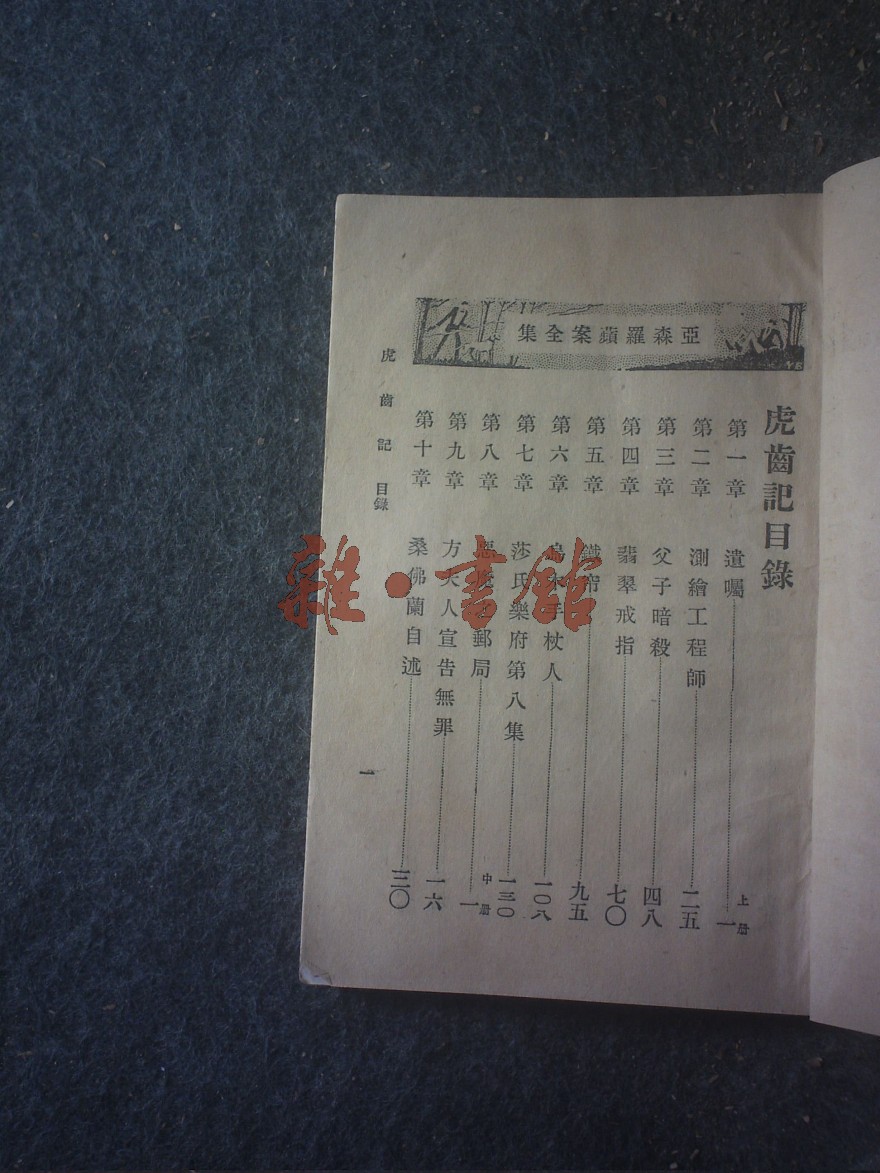 亞森羅蘋案全集
虎齒記目錄
第一章 遺囑 上册 一
第二章 測繪工程師 二五
第三章 父子暗殺 四八
第四章 翡翠戒指 七〇
第五章 鐵帘 九五
第六章 烏木手杖人 一〇八
第七章 莎氏樂府第八集 一三〇
第八章 惡魔之郵局 中册 一
第九章 方夫人宣告無罪 一六
第十章 桑佛蘭自述 三〇
虎齒記 目錄
一
雜·書館